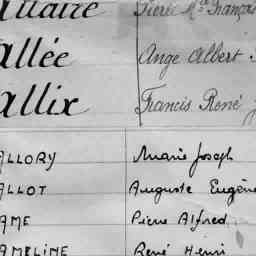 allaire Pierre Mce François
allée Ange Albert
allix Francis René J
ALLORY Marie Joseph
ALLOT Auguste Eugène
AME Pierre Alfred
AMELINE René Henri